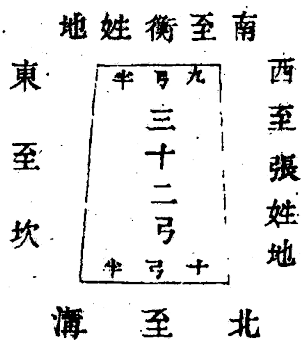 南至衡姓地
西至張姓地
九弓半
三十二弓
十弓半
東至坎
北至溝